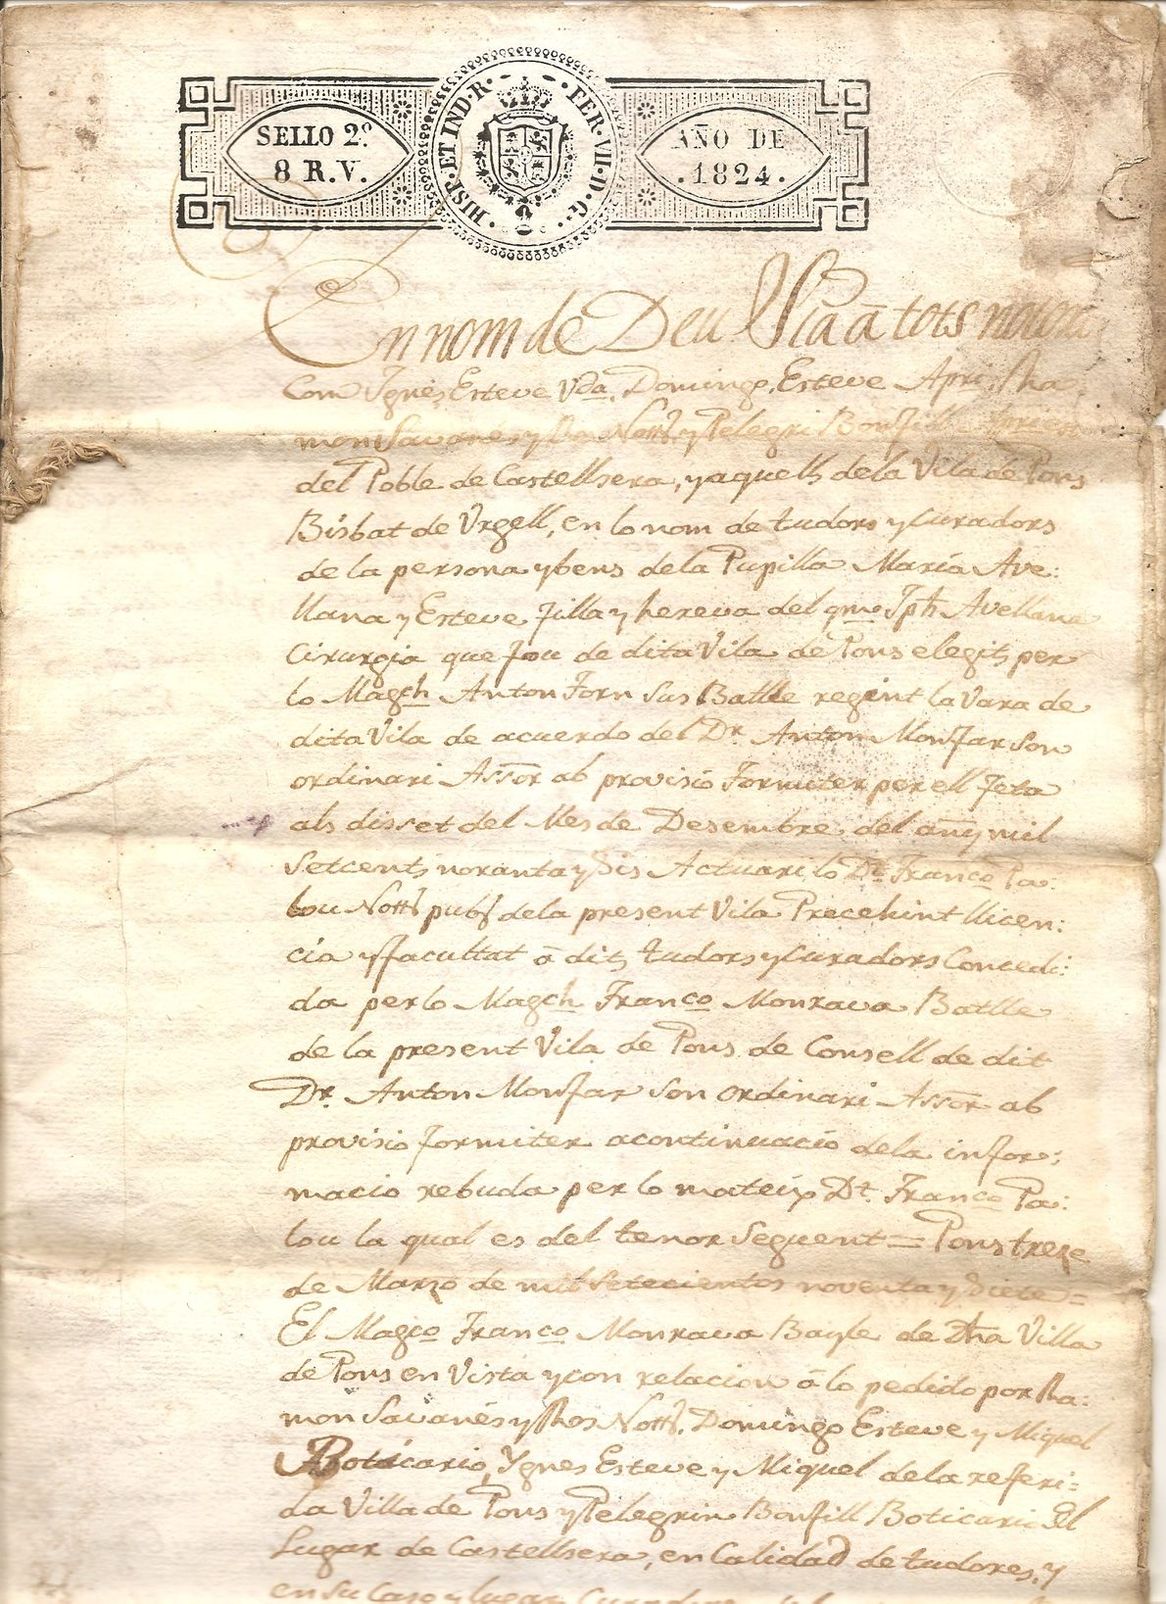 SELLO 2.º
8 R.V.
HISP. ET IND. R. FER. VII. D. G.
AÑO DE
.1824.
En nom de Deu Sia â tots notori
Com Ygnes Esteve Vda. Domingo Esteve Apri. Ra
mon Savanes y Nott. y Pelegri Bonfill
del Poble de Castellsera, y aquells de la Vila de Pons
Bisbat de Urgell, en lo nom de tudors y Curadors
de la persona y bens de la Pupilla Maria Ave:
llana y Esteve filla y hereva del qm. Jph. Avellana
Cirurgia que fou de dita Vila de Pons elegits per
lo Magch Anton Forn Sus Batlle regint la Vara de
dita Vila de acuerdo del Dr. Anton Monfar Son
ordinari Assor ab provisió formiter per ell feta
als disset del Mes de Desembre del any mil
Setcents noranta y Sis Actuari lo Dt. Franco Pa:
lou Nott. pub. de la present Vila Precehint llicen:
cia y facultat â dits tudors y Curadors Concedi:
da per lo Magch Franco Monrava Batlle
de la present Vila de Pons de Consell de dit
Dr. Anton Monfar Son ordinari Assor ab
provisio formiter acontinuació de la infor:
macio rebuda per lo mateix Dt. Franco Pa:
lou la qual es del tenor Seguent = Pons treze
de Marzo de mil Setecientos noventa y Siete =
El Magco Franco Monrava Bayle de Dha Villa
de Pons en Vista y con relacion â lo pedido por Ra:
mon Savanés y Nott. Domingo Esteve y Miquel
Boticario, Ygnes Esteve y Miquel de la referi:
da Villa de Pons y Pelegrin Bonfill Boticario del
Lugar de Castellsera, en Calidad de tudores, y
en Su Caso y lugar Curadores